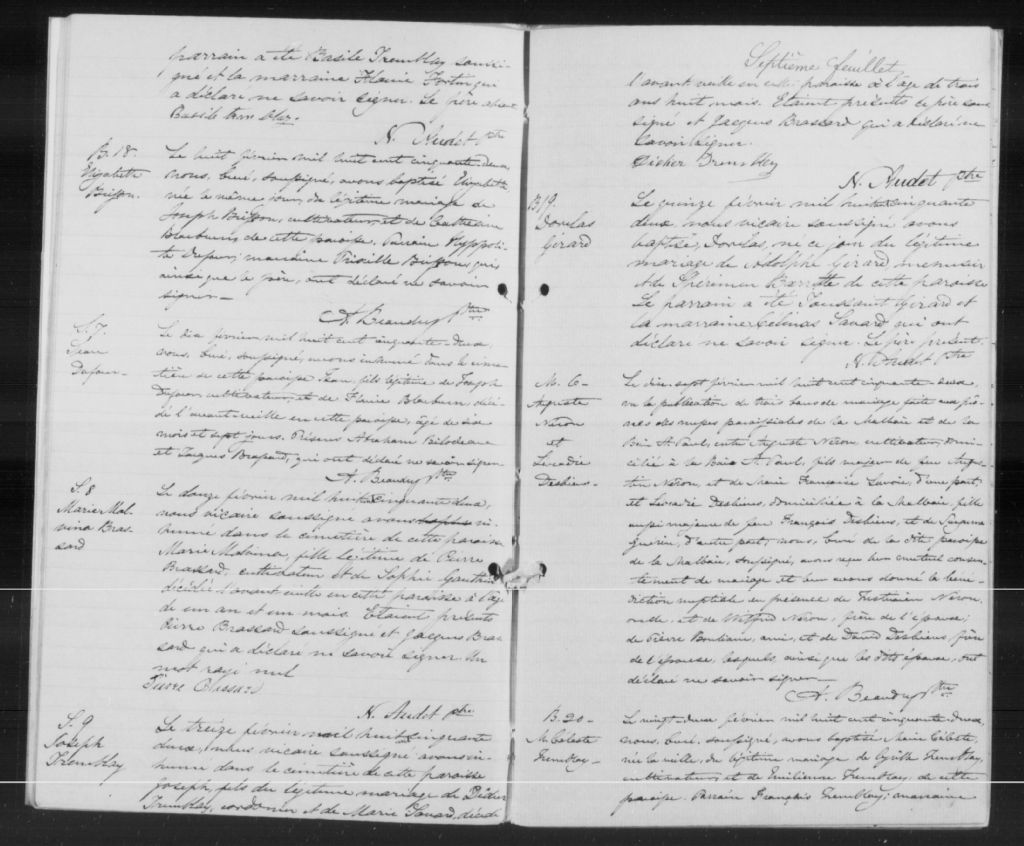 parrain a été Basile Tremblay soussi-
gné et la marraine Flavie Fortin qui
a déclaré ne savoir signer. Le père absent
Bassile
N. Audet ptre
B. 18.
Elizabeth
Brisson.
Le huit février mil huit cent cinquante-deux,
nous, curé, soussigné, avons baptisé Elizabeth
née le même jour, du légitime mariage de
Joseph Brisson, cultivateur, et de Catherine
Blackburn, de cette paroisse. Parrain Hyppoli-
te Dufour; marraine Priscille Brisson, qui,
ainsi que le père, ont déclaré ne savoir
signer—
A. Beaudry Ptre
S. 7.
Jean
Dufour—
Le dix février mil huit cent cinquante-deux,
nous, curé, soussigné, avons inhumé dans le cime-
tière de cette paroisse Jean, fils légitime de Joseph
Dufour, cultivateur, et de Flavie Blackburn, décé-
dé l'avant-veille en cette paroisse, âgé de
mois et sept jours. Présens Abraham Bilodeau
et Jacques Brassard, qui ont déclaré ne savoir signer
A. Beaudry Ptre
S. 8
Marie Mal-
vina Bras-
sard
Le douze février mil huit cinquante deux,
nous vicaire soussigné avons in-
humé dans le cimetière de cette paroisse
Marie Malvina, fille légitime de Pierre
Brassard, cultivateur et de Sophie Gauthier
décédée l'avant veille en cette paroisse à l'âge
de un an et un mois. Etaient présents
Pierre Brassard soussigné et Jacques Bras-
sard qui a déclaré ne savoir signer Un
mot rayé nul
Pierre Brassard
N. Audet ptre
S. 9
Joseph
Tremblay
Le treize février mil huit cinquante
deux, nous vicaire soussigné avons in-
humé dans le cimetière de cette paroisse
Joseph, fils du légitime mariage de Didier
Tremblay, cordonnier et de Marie Savard, décédé
Septième feuillet
l'avant veille en cette paroisse à l'âge de trois
ans huit mois. Etaient présents le père sous
signé et Jacques Brassard qui a déclaré ne
savoir signer.
Didier Tremblay
N. Audet ptre
B. 19.
Dorilas
Girard
Le quinze février mil huit cinquante
deux, nous vicaire soussigné avons
baptisé, Dorilas, né ce jour du légitime
mariage de Adolphe Girard menuisier
et de Barrette de cette paroisse
Le parrain a été Toussaint Girard et
la marraine Célinas Savard qui ont
déclaré ne savoir signer. Le père présent.
N. Audet Ptre
M. 6—
Auguste
Néron
et
Léocadie
Desbiens—
Le dix-sept février mil huit cent cinquante-deux,
vu la publication de trois bans de mariage faite aux prô-
nes des messes paroissiales de la Malbaie et de la
Baie St Paul, entre Auguste Néron, cultivateur, domi-
cilié à la Baie St Paul, fils majeur de feu Augus-
tin Néron, et de Marie Françoise Lavoie, d'une part;
et Léocadie Desbiens, domiciliée à la Malbaie, fille
aussi majeure de feu François Desbiens, et de
Guérin, d'autre part; nous, curé de la dite paroisse
de la Malbaie, soussigné, avons reçu leur mutuel consen-
tement de mariage et leur avons donné la béné-
diction nuptiale en présence de Néron,
oncle, et de Wilfred Néron, frère de l'époux;
de Pierre Boudreau, ami, et de David Desbiens, frère
de l'épouse, lesquels, ainsi que les dits époux, ont
déclaré ne savoir signer—
A. Beaudry Ptre
B. 20—
M. Céleste
Tremblay—
Le vingt-deux février mil huit cent cinquante-deux,
nous, curé, soussigné, avons baptisé Marie Céleste,
née la veille, du légitime mariage de Cyrille Tremblay,
cultivateur, et de Emilienne Tremblay, de cette
paroisse. Parrain François Tremblay; marraine